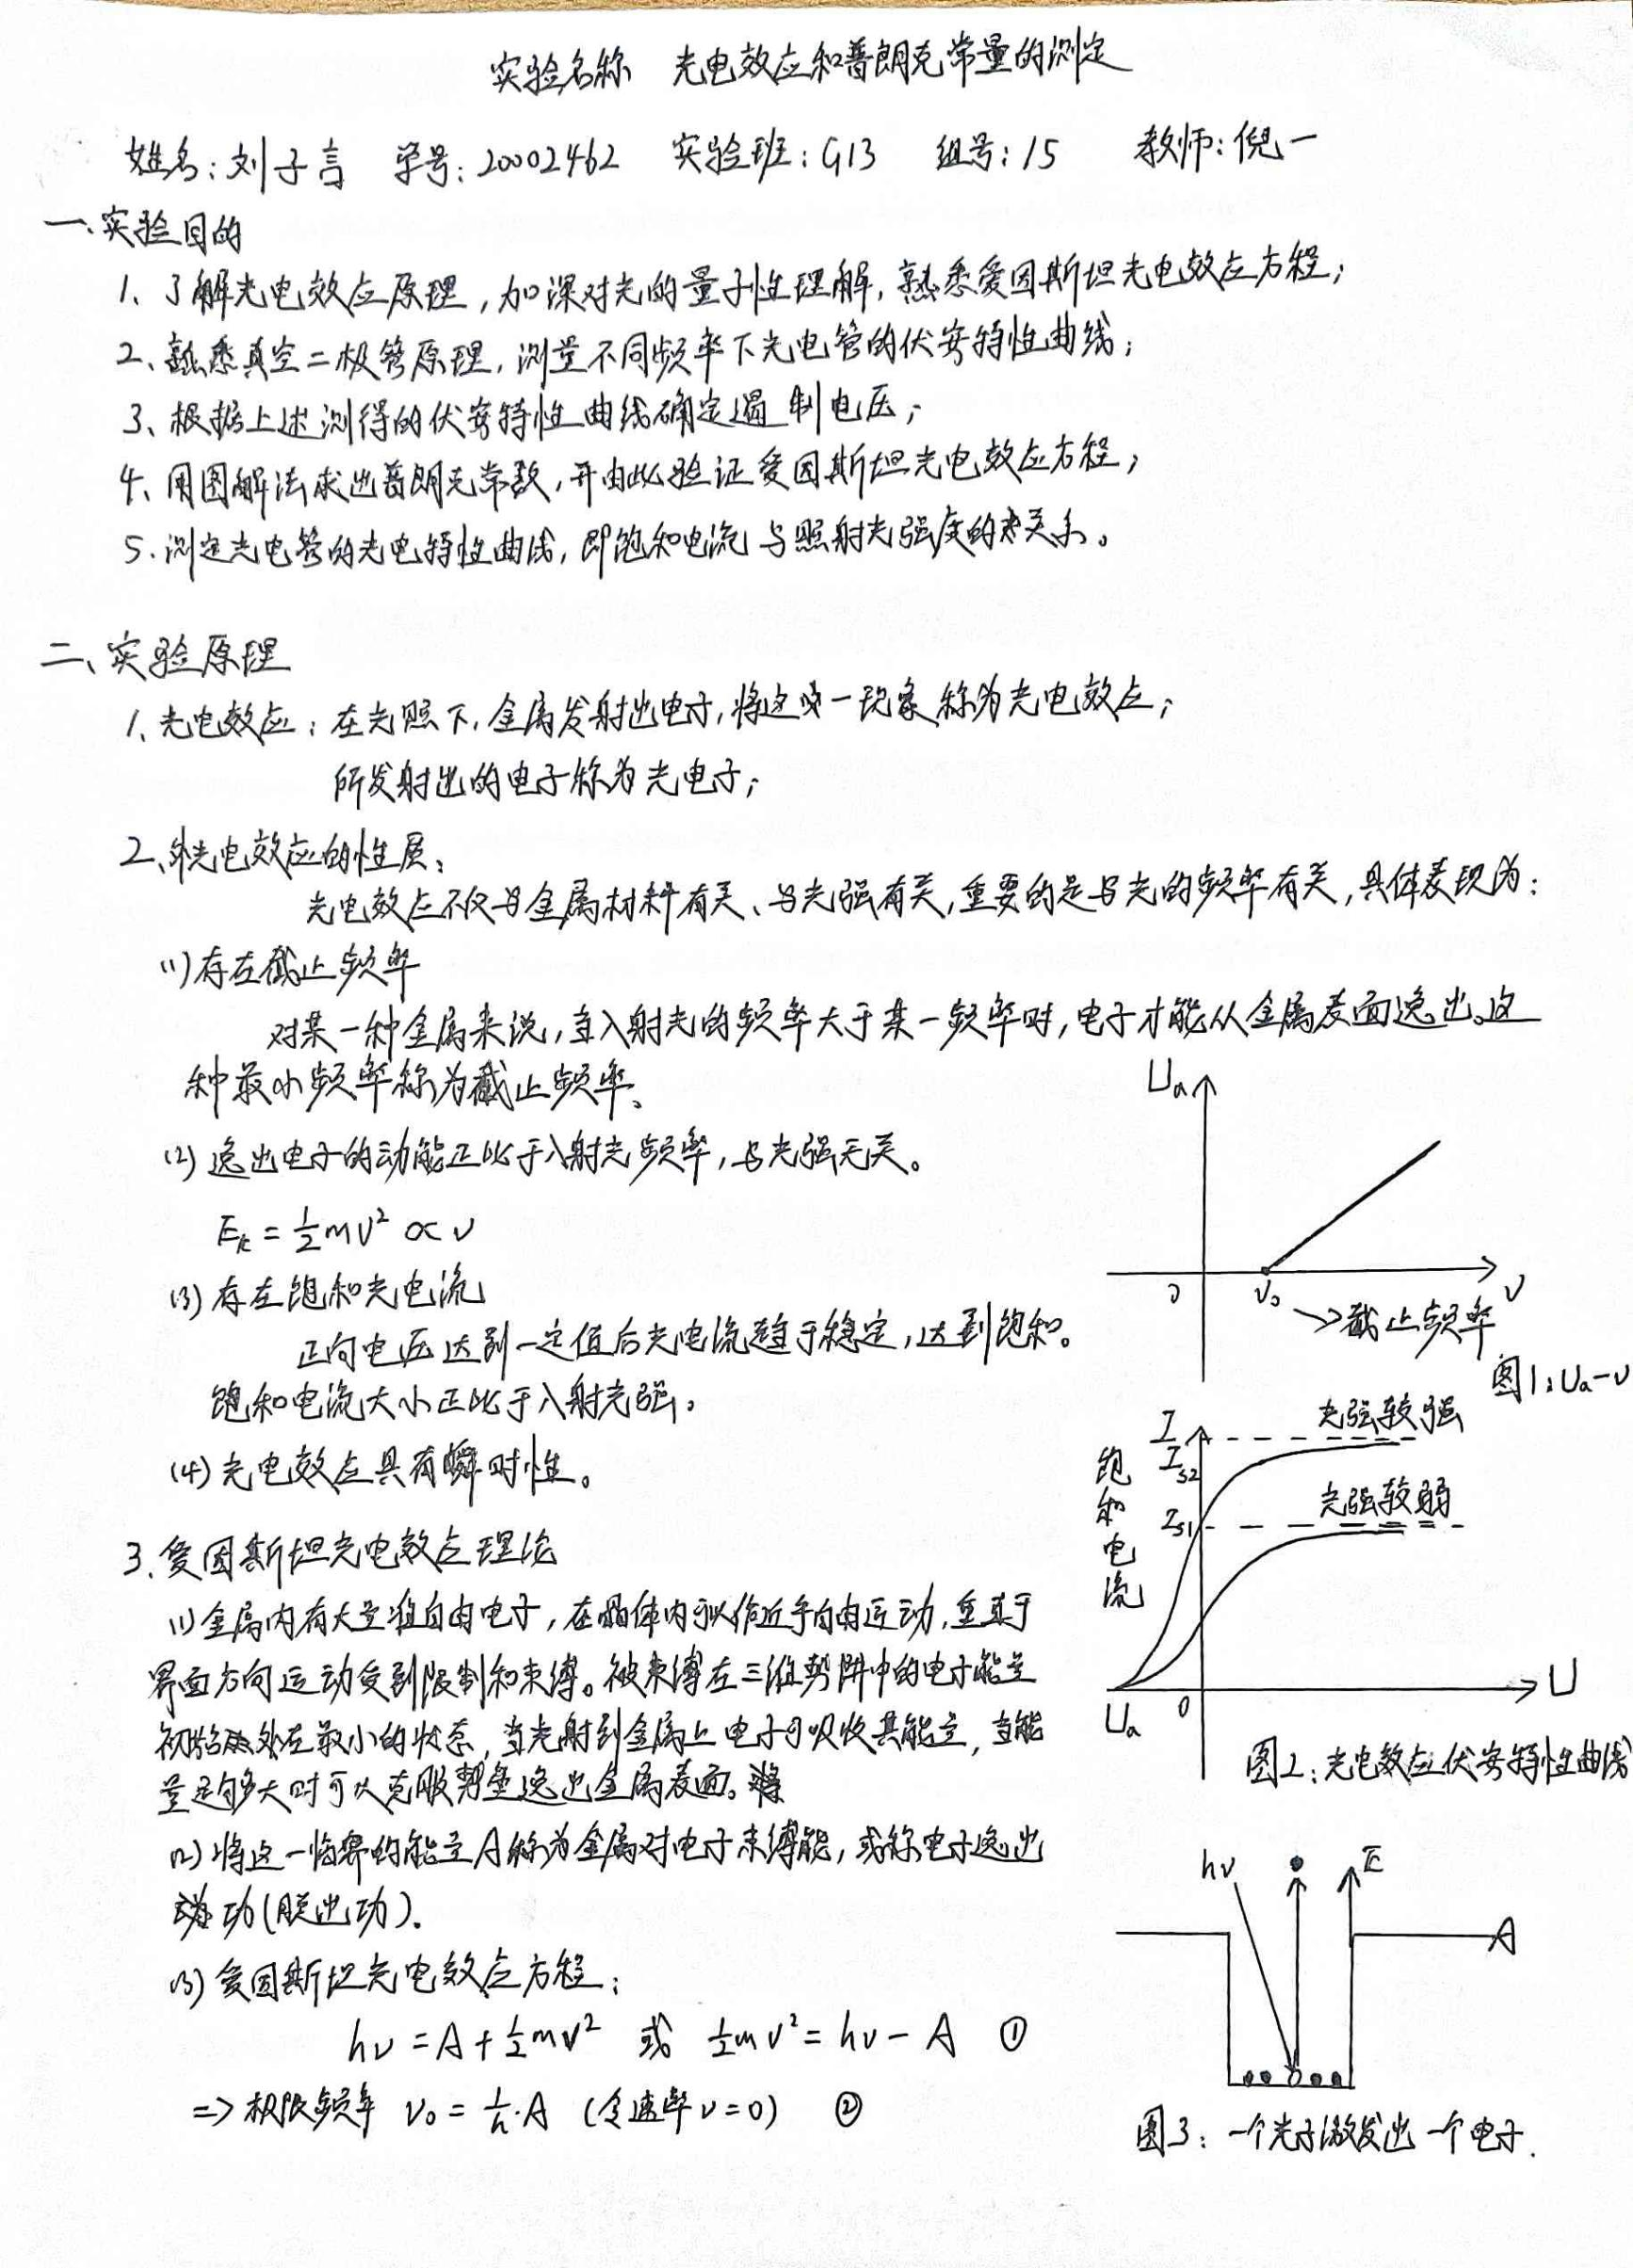 实验名称 光电效应和普朗克常量的测定
姓名：刘子言 学号：20002462 实验班：G13 组号：15 教师：倪一
一、实验目的
1、了解光电效应原理，加深对光的量子性理解，熟悉爱因斯坦光电效应方程；
2、熟悉真空二极管原理，测量不同频率下光电管的伏安特性曲线；
3、根据上述测得的伏安特性曲线确定遏制电压；
4、用图解法求出普朗克常数，并由此验证爱因斯坦光电效应方程；
5.测定光电管的光电特性曲线，即饱和电流与照射光强度的关系。
二、实验原理
1、光电效应：在光照下，金属发射出电子，将这一现象称为光电效应；
所发射出的电子称为光电子；
2、外光电效应的性质：
光电效应不仅与金属材料有关、与光强有关，重要的是与光的频率有关，具体表现为：
(1)存在截止频率
对某一种金属来说，当入射光的频率大于某一频率时，电子才能从金属表面逸出。这
种最小频率称为截止频率。
(2)逸出电子的动能正比于入射光频率，与光强无关。
Eₖ = ½mv² ∝ ν
(3)存在饱和光电流
正向电压达到一定值后光电流趋于稳定，达到饱和。
饱和电流大小正比于入射光强。
(4)光电效应具有瞬时性。
Ua
0 ν₀ ν
→截止频率
图1：Ua-ν
I
Is2
光强较强
Is1
光强较弱
饱和电流
Ua 0 U
图2：光电效应伏安特性曲线
3.爱因斯坦光电效应理论
(1)金属内有大量准自由电子，在晶体内可以作近乎自由运动，垂直于
界面方向运动受到限制和束缚。被束缚在三维势阱中的电子能量
初始处在最小的状态，当光射到金属上电子可吸收其能量，当能
量足够大时可以克服势垒逸出金属表面。
(2)将这一临界的能量A称为金属对电子束缚能，或称电子逸出
功(脱出功)。
(3)爱因斯坦光电效应方程：
hν = A + ½mv² 或 ½mv² = hν - A ①
=> 极限频率 ν₀ = 1/h·A (令速率v=0) ②
hν E
A
图3：一个光子激发出一个电子.